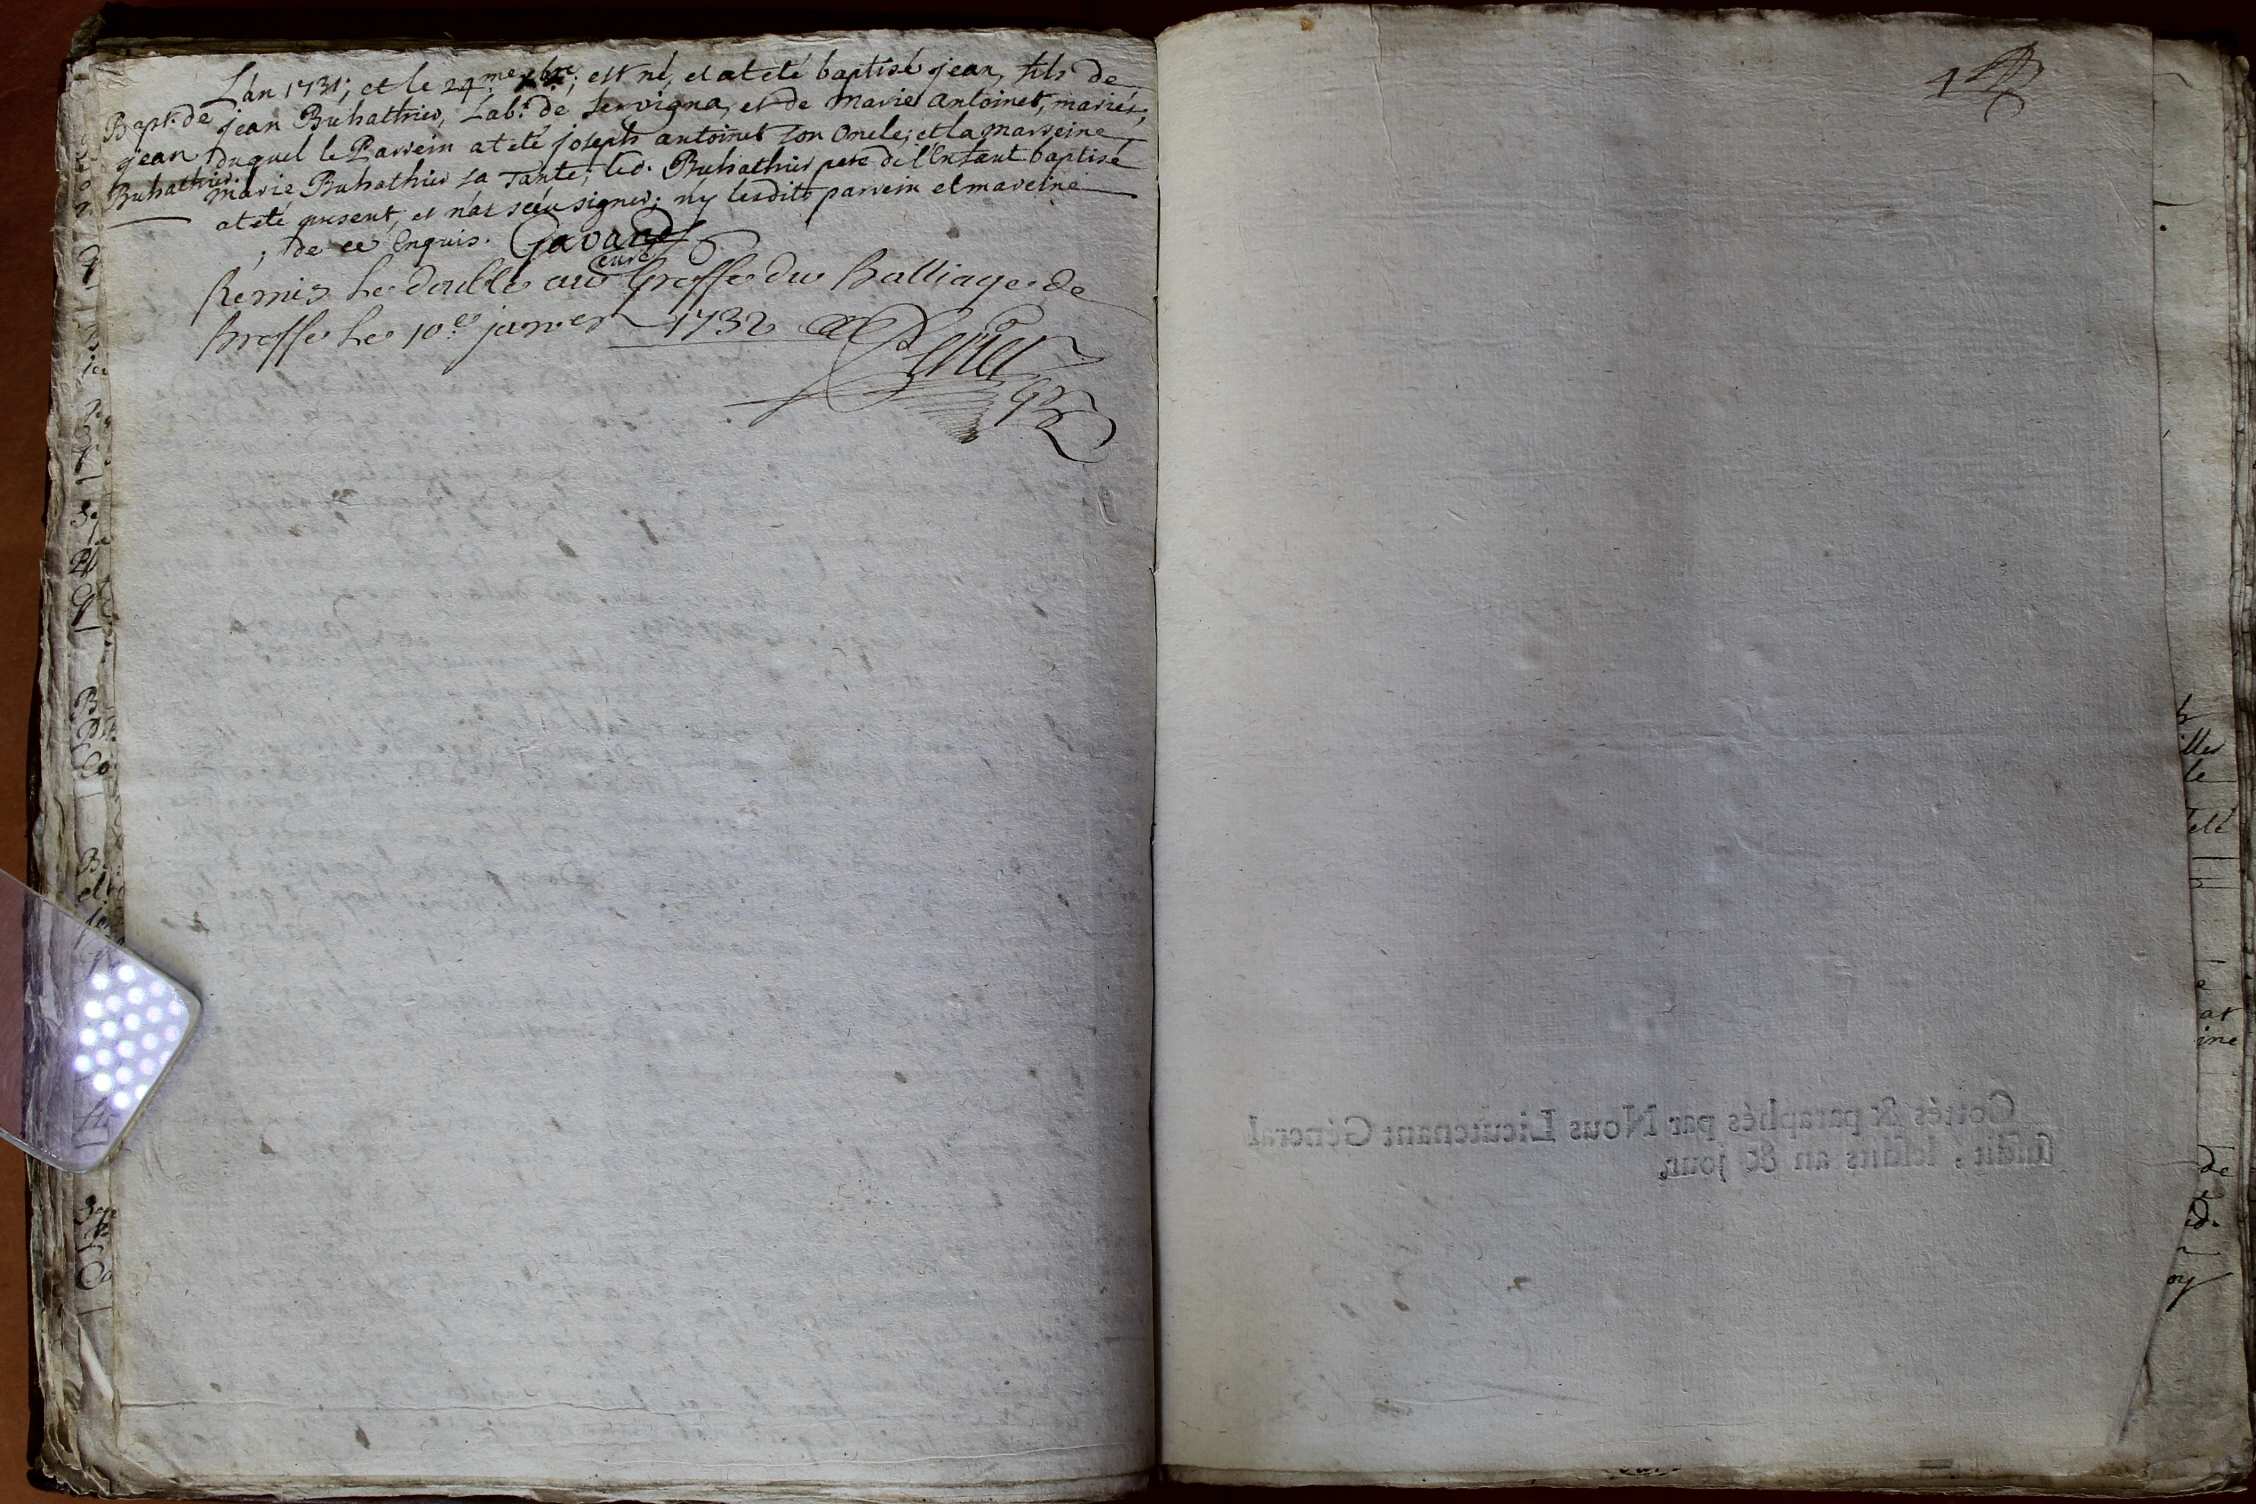 L'an 1731; et le 24.me xbre; est né, et at eté baptisé jean, fils de
Bapt. de
jean
Buhathier.
jean Buhathier, Lab.r de Servigna, et de Marie antoinet, mariés,
duquel le Parrein at eté joseph antoinet son oncle; et la marreine
marie Buhathier sa Tante; led. Buhathier pere de l'Enfant baptisé
at eté present, et n'at sçéu signer; ny lesdits parrein et marreine
; de ce Enquis. Gavand
curé
Remis Le double au Greffe du Balliage de
Bresse Le 10.e janvier 1732
4
Cottés & paraphés par Nous Lieutenant Général
susdit, lesdits an & jour,